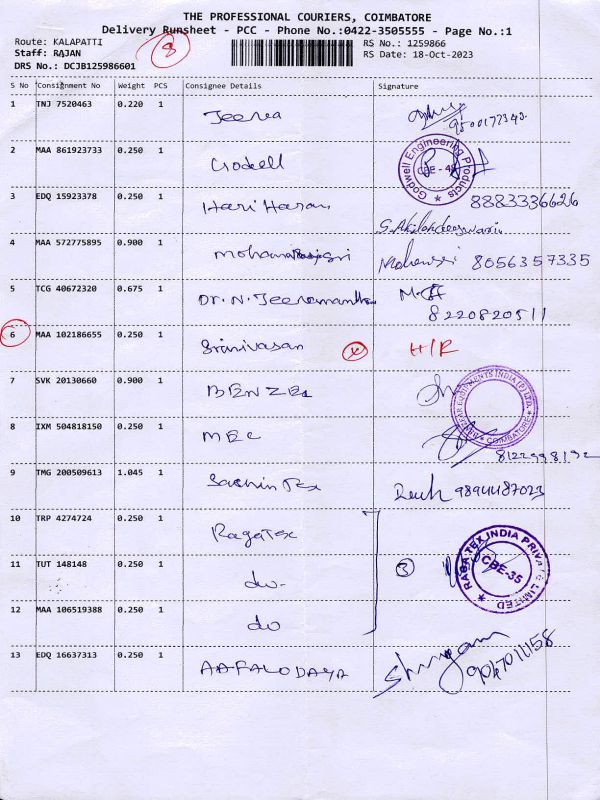 THE PROFESSIONAL COURIERS, COIMBATORE
Delivery Runsheet - PCC - Phone No.:0422-3505555 - Page No.:1
Route: KALAPATTI
8
RS No.: 1259866
Staff: RAJAN
RS Date: 18-Oct-2023
DRS No.: DCJB125986601
S No Consignment No Weight PCS Consignee Details Signature
1 TNJ 7520463 0.220 1 Jeeva
2 MAA 861923733 0.250 1 Godwell Godwell Engineering Products
3 EDQ 15923378 0.250 1 Hari Haran 8883336626
4 MAA 572775895 0.900 1 8056357335
5 TCG 40672320 0.675 1 Dr. N.
8220820511
6 MAA 102186655 0.250 1 Srinivasan H/R
7 SVK 20130660 0.900 1 COIMBATORE
8 IXM 504818150 0.250 1 MEC
9 TMG 200509613 1.045 1 9894487023
10 TRP 4274724 0.250 1 Ragatex
11 TUT 148148 0.250 1 do- 3 RAGA TEX INDIA PRIVATE LIMITED CBE-35
12 MAA 106519388 0.250 1 do
13 EDQ 16637313 0.250 1